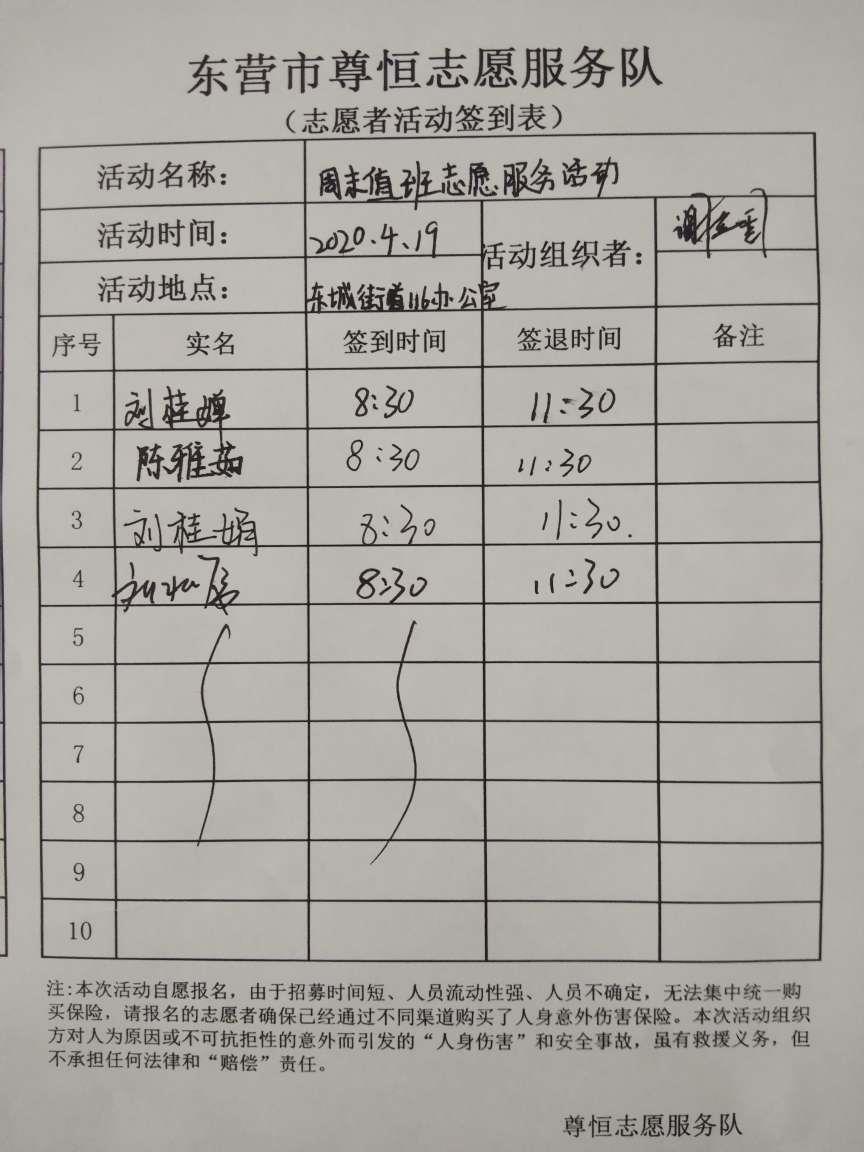 东营市尊恒志愿服务队
（志愿者活动签到表）
活动名称： 周末值班志愿服务活动
活动时间： 2020.4.19 活动组织者：
活动地点： 东城街道116办公室
序号 实名 签到时间 签退时间 备注
1 刘桂婵 8:30 11:30
2 陈雅茹 8:30 11:30
3 刘桂娟 8:30 11:30.
4 8:30 11:30
5
6
7
8
9
10
注:本次活动自愿报名，由于招募时间短、人员流动性强、人员不确定，无法集中统一购
买保险，请报名的志愿者确保已经通过不同渠道购买了人身意外伤害保险。本次活动组织
方对人为原因或不可抗拒性的意外而引发的“人身伤害”和安全事故，虽有救援义务，但
不承担任何法律和“赔偿”责任。
尊恒志愿服务队